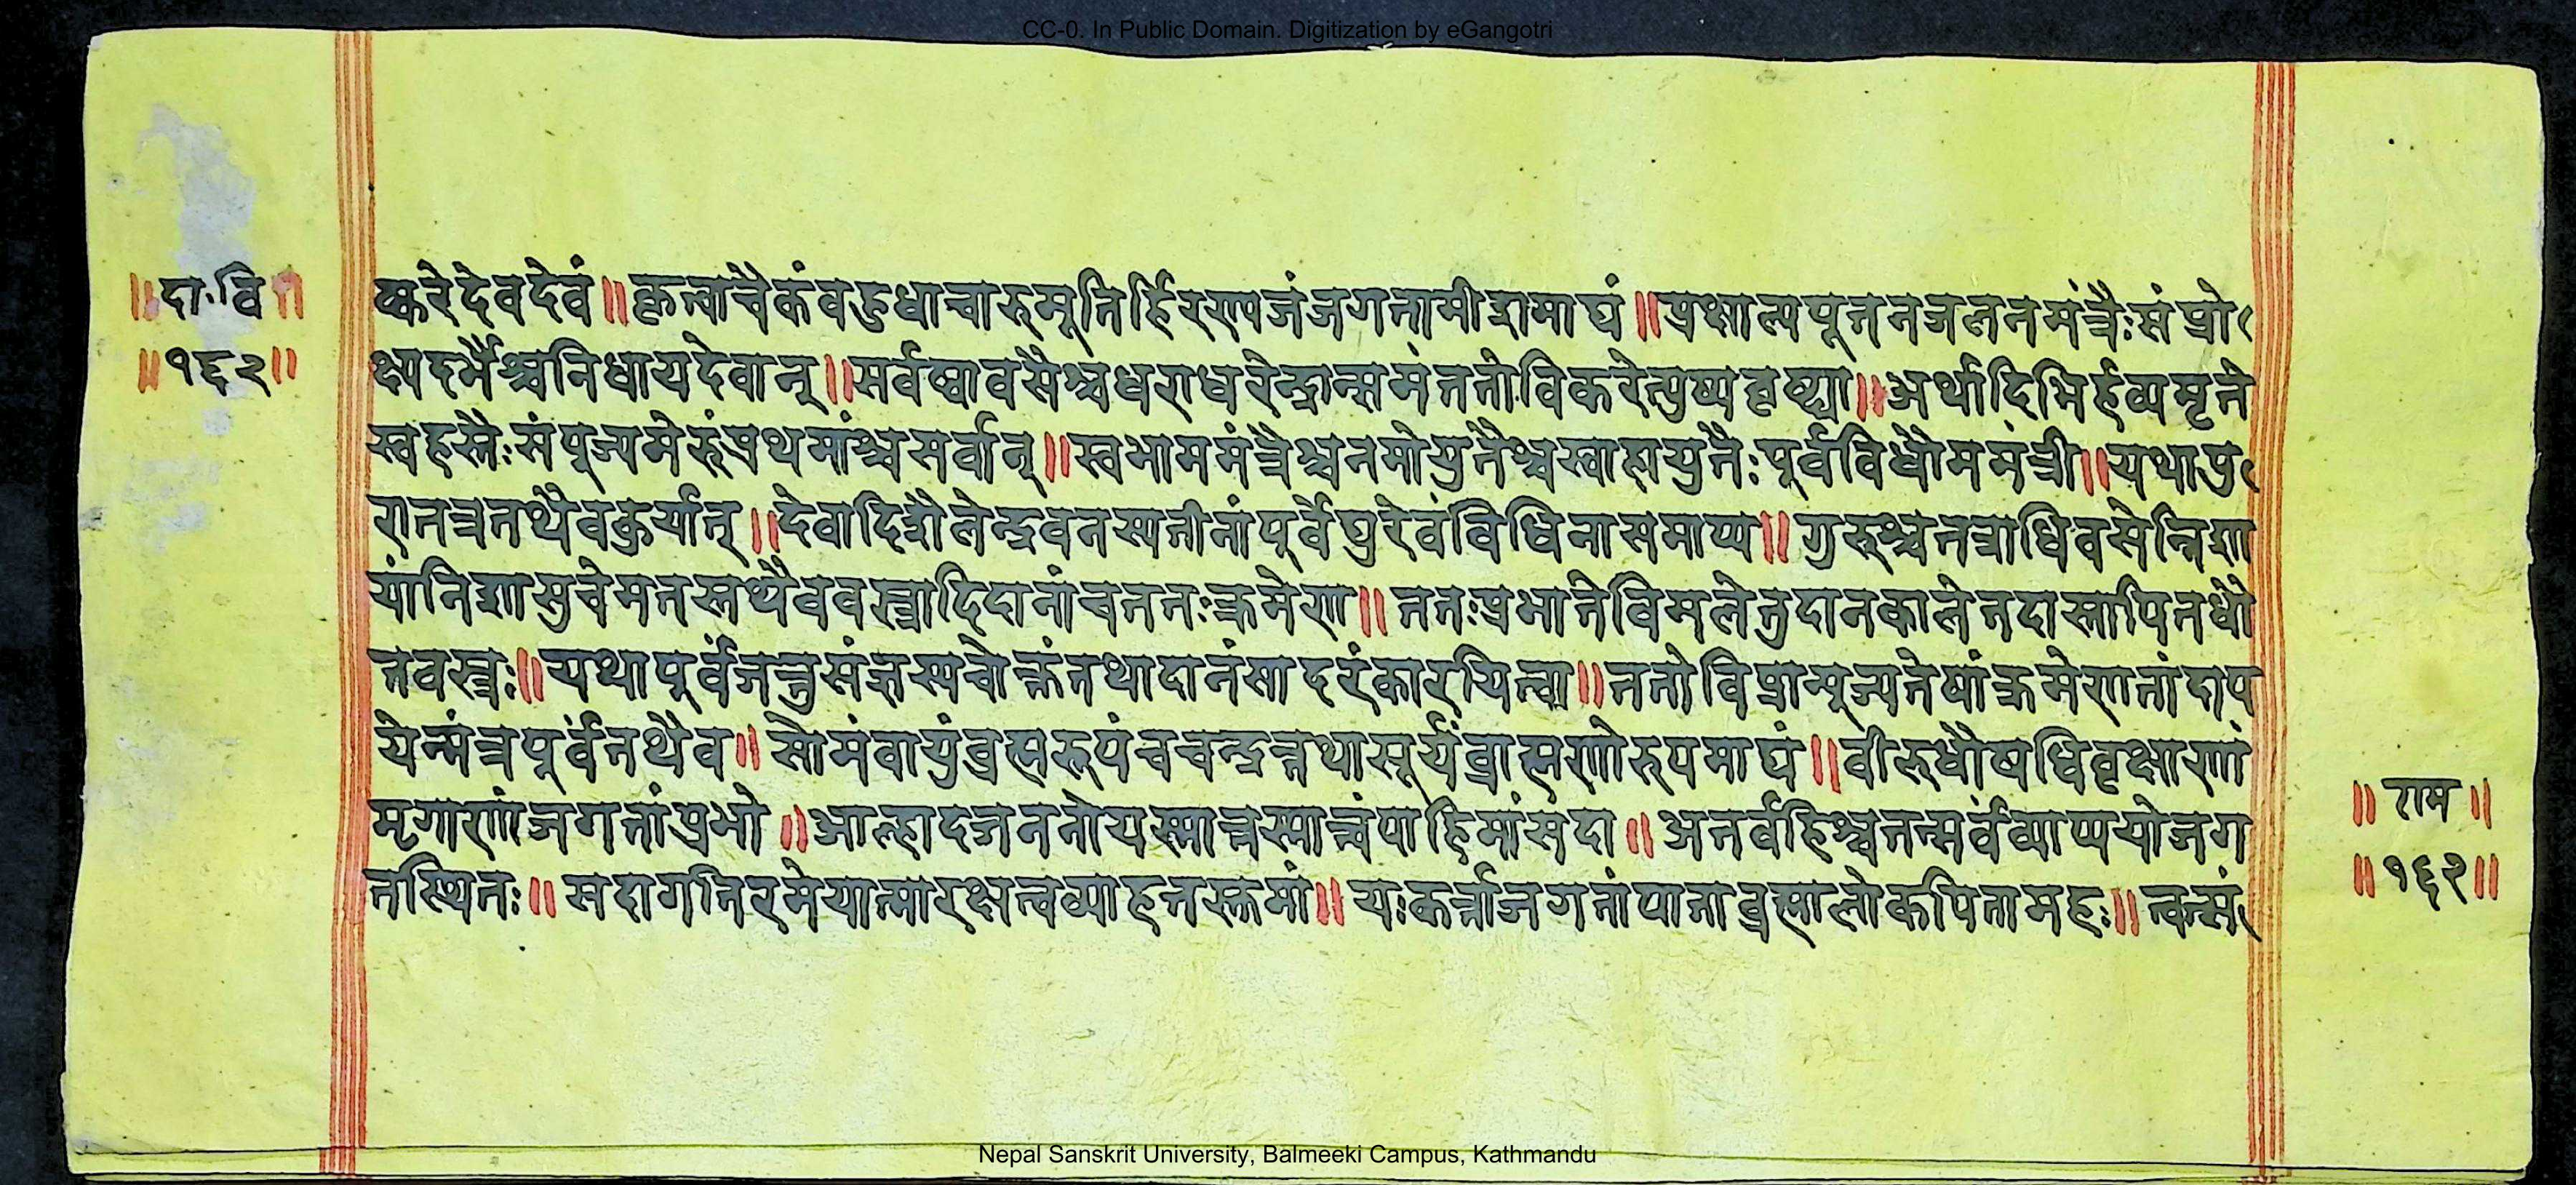 CC-0. In Public Domain. Digitization by eGangotri
॥दा॰वि॥
॥१६२॥
ष्करेदेवदेवं॥कृत्वाचैकंवहुधाचारुमूर्तिर्हिरण्यजंजगतामीशमाद्यं॥प्रक्षाल्यपूतनजलनमंत्रैःसंप्रो
क्ष्यदर्भैश्चनिधायदेवान्॥सर्वष्वावसैश्चधराधरेन्द्रान्समंततोविकरेत्पुष्पवृष्ट्या॥अर्थादिभिर्हव्यमृते
स्वहस्तैःसंपूज्यमेरुंप्रथमांश्चसर्वान्॥स्वभाममंत्रैश्चनमोयुतैश्चस्वाहायुतैःपूर्वविधौममंत्री॥यथापु
रातत्रतथैवकुर्यात्॥देवादिशैलेन्द्रवनस्पतीनांपूर्वेद्युरेवंविधिनासमाप्य॥गुरुश्चतत्राधिवसेन्निशा
यांनिशासुचेमतस्तथैववस्त्रादिदानांचततःक्रमेण॥ततःप्रभातेविमलेतुदानकालेतदास्नापितधौ
तवस्त्रः॥यथापूर्वंजन्तुसंज्ञस्यचोक्तंतथादानंसादरंकारयित्वा॥ततोविप्रान्पूज्यतेषांक्रमेणतांदाप
येन्मंत्रपूर्वंतथैव॥सोमंवायुंब्रह्मरूपंचचन्द्रन्तथासूर्यंब्राह्मणोरुपमाद्यं॥वीरूधौषधिवृक्षाणां
मृगाणांजगतांप्रभो॥आल्हादजननोयस्मात्तस्मात्त्वंपाहिमांसदा॥अन्तर्वहिश्चतत्सर्वंव्याप्ययोजग
तस्थितः॥सदागतिरमेयात्मारक्षत्वव्याहतस्क्तमां॥यःकर्त्ताजगतांपाताब्रह्मालोकपितामहः॥त्वत्सं
॥राम॥
॥१६२॥
Nepal Sanskrit University, Balmeeki Campus, Kathmandu